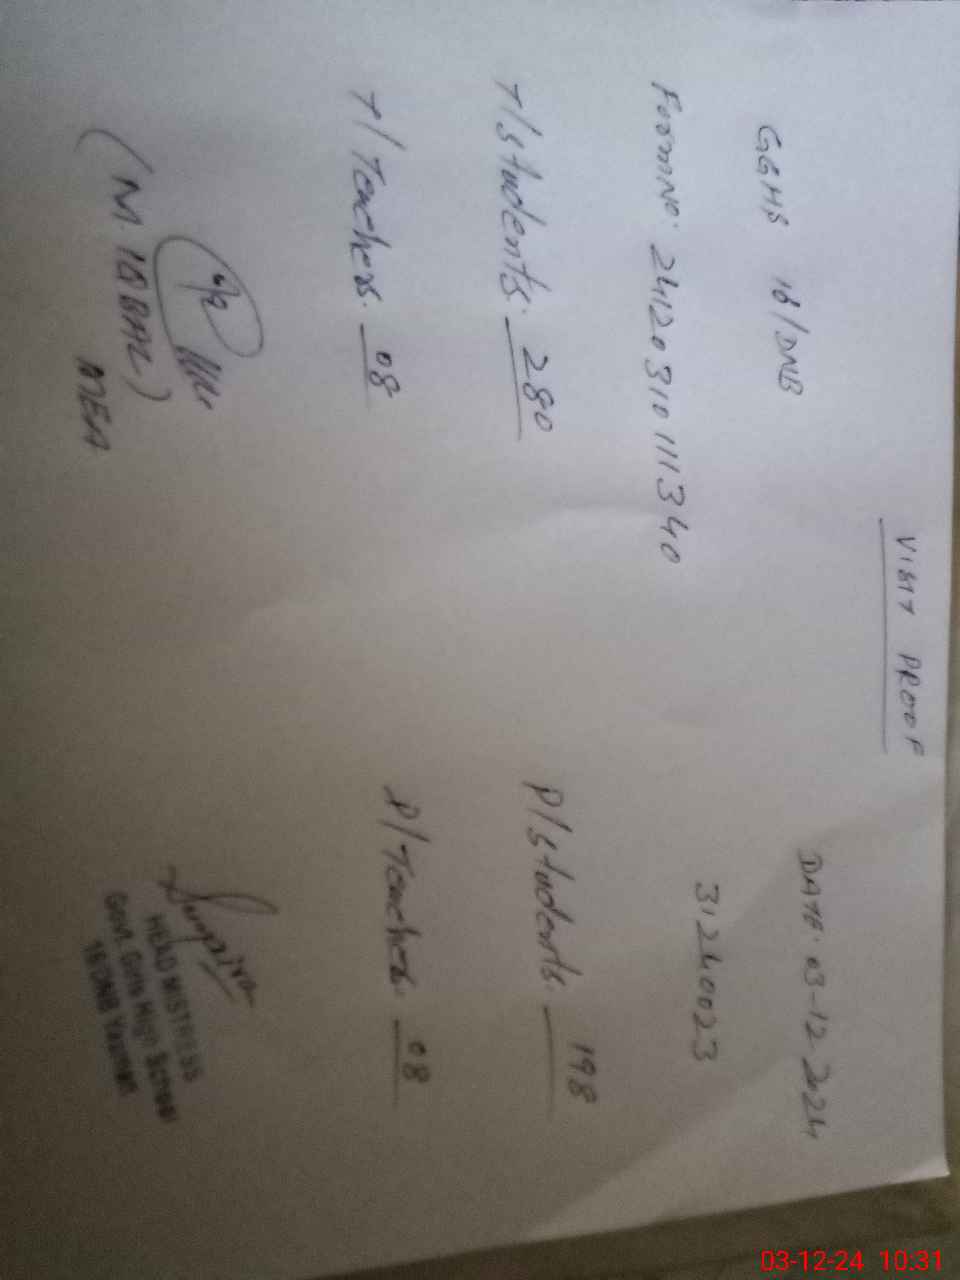 VISIT PROOF
GGHS 18/DNB DATE. 03-12-2024
FormNo. 24120310111340 31240023
T/Students. 280 P/Students. 198
T/Teachers. 08 P/Teachers. 08
(M. IQBAL)
MEA
HEAD MISTRESS
Govt. Girls High School
18/DNB Yazman
03-12-24 10:31